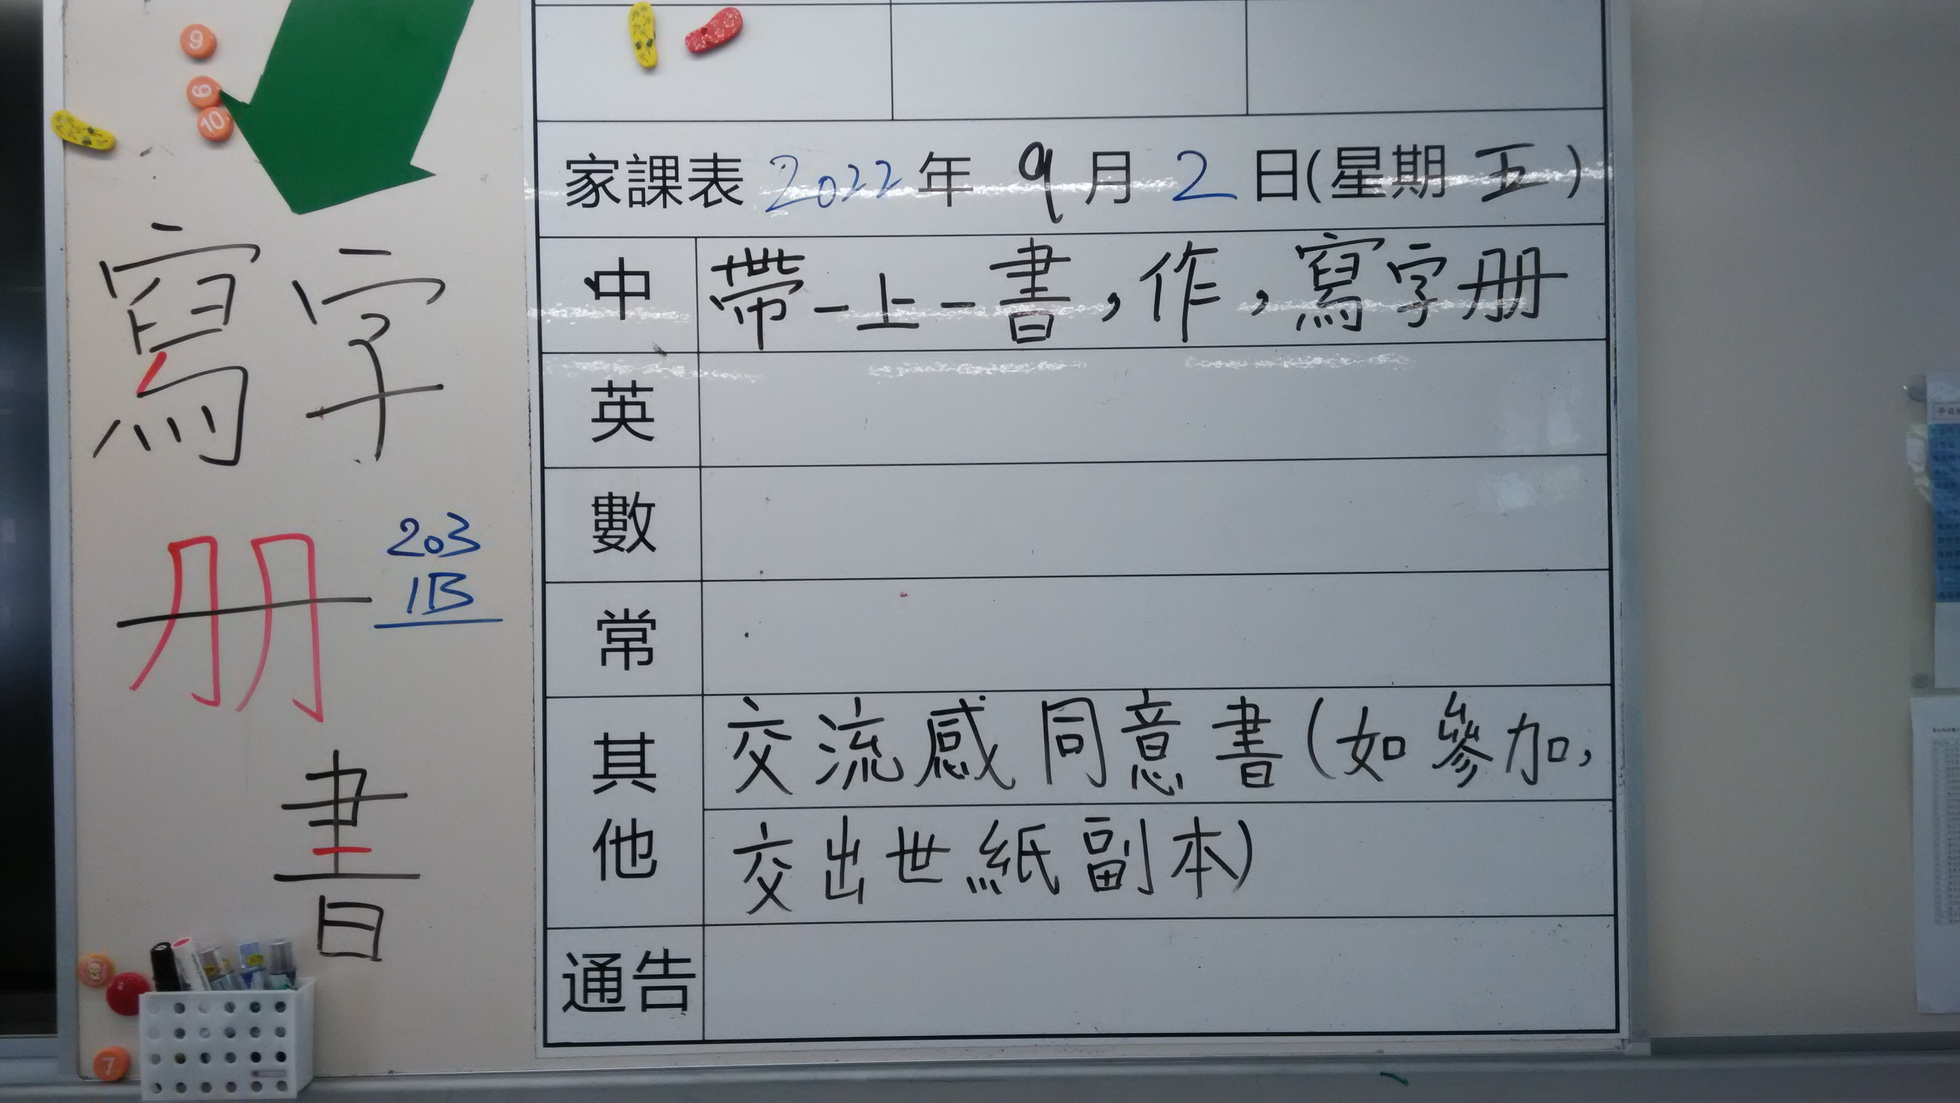 9
6
10
寫字
册
203
1B
書
7
家課表 2022年 9月 2日(星期 五)
中 帶一上一書,作,寫字册
英
數
常
其他 交流感同意書(如參加,
交出世紙副本)
通告